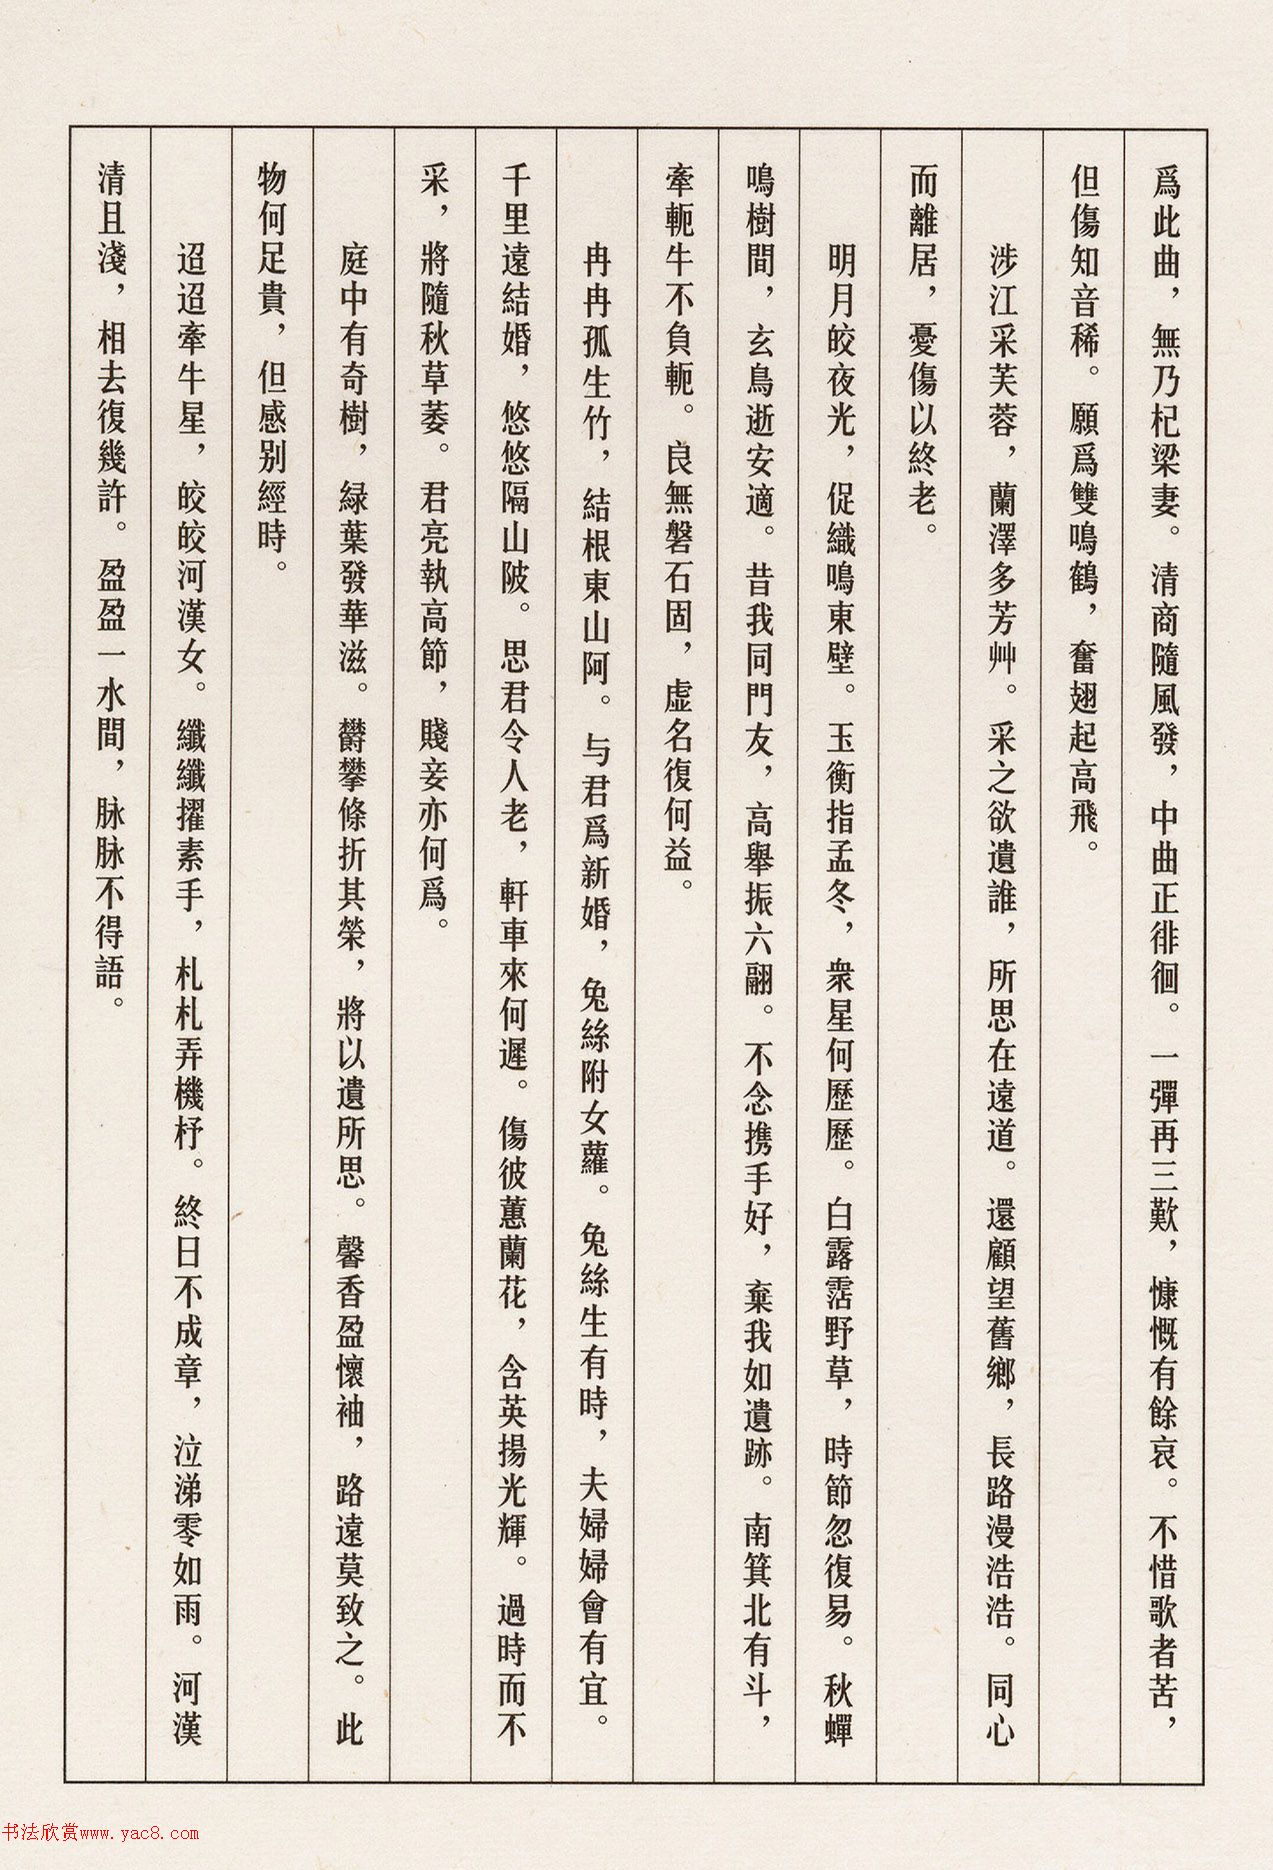 爲此曲，無乃杞梁妻。清商隨風發，中曲正徘徊。一彈再三歎，慷慨有餘哀。不惜歌者苦，
但傷知音稀。願爲雙鳴鶴，奮翅起高飛。
涉江采芙蓉，蘭澤多芳艸。采之欲遺誰，所思在遠道。還顧望舊鄉，長路漫浩浩。同心
而離居，憂傷以終老。
明月皎夜光，促織鳴東壁。玉衡指孟冬，衆星何歷歷。白露霑野草，時節忽復易。秋蟬
鳴樹間，玄鳥逝安適。昔我同門友，高舉振六翮。不念携手好，棄我如遺跡。南箕北有斗，
牽軛牛不負軛。良無磐石固，虛名復何益。
冉冉孤生竹，結根東山阿。与君爲新婚，兔絲附女蘿。兔絲生有時，夫婦婦會有宜。
千里遠結婚，悠悠隔山陂。思君令人老，軒車來何遲。傷彼蕙蘭花，含英揚光輝。過時而不
采，將隨秋草萎。君亮執高節，賤妾亦何爲。
庭中有奇樹，緑葉發華滋。欝攀條折其榮，將以遺所思。馨香盈懷袖，路遠莫致之。此
物何足貴，但感别經時。
迢迢牽牛星，皎皎河漢女。纖纖擢素手，札札弄機杼。終日不成章，泣涕零如雨。河漢
清且淺，相去復幾許。盈盈一水間，脉脉不得語。
书法欣赏www.yac8.com